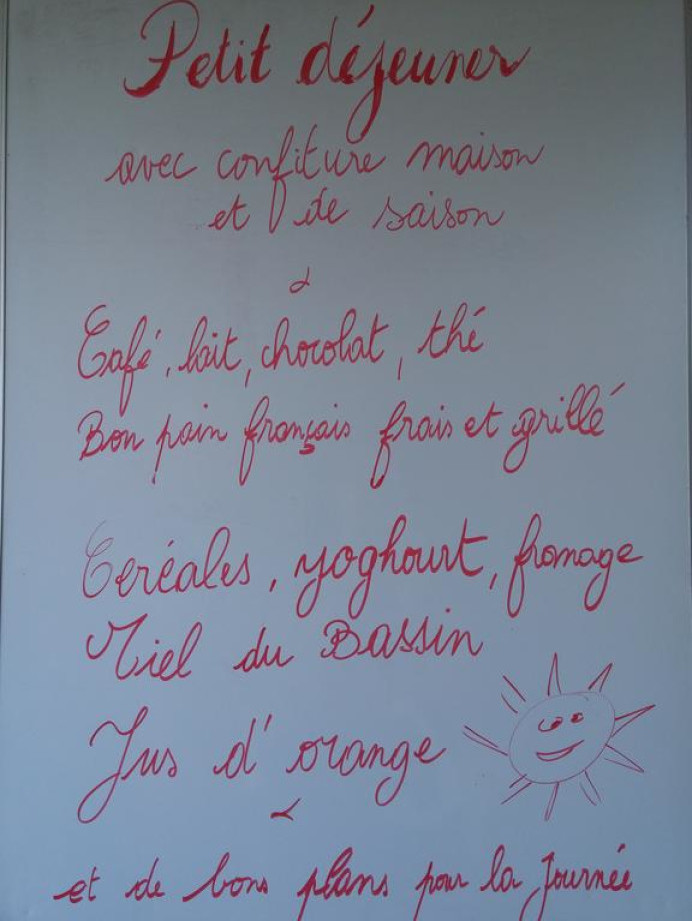 Petit déjeuner
avec confiture maison
et de saison
Café, lait, chocolat, thé
Bon pain français frais et grillé
Ceréales, yoghourt, fromage
Miel du Bassin
Jus d'orange
et de bons plans pour la Journée